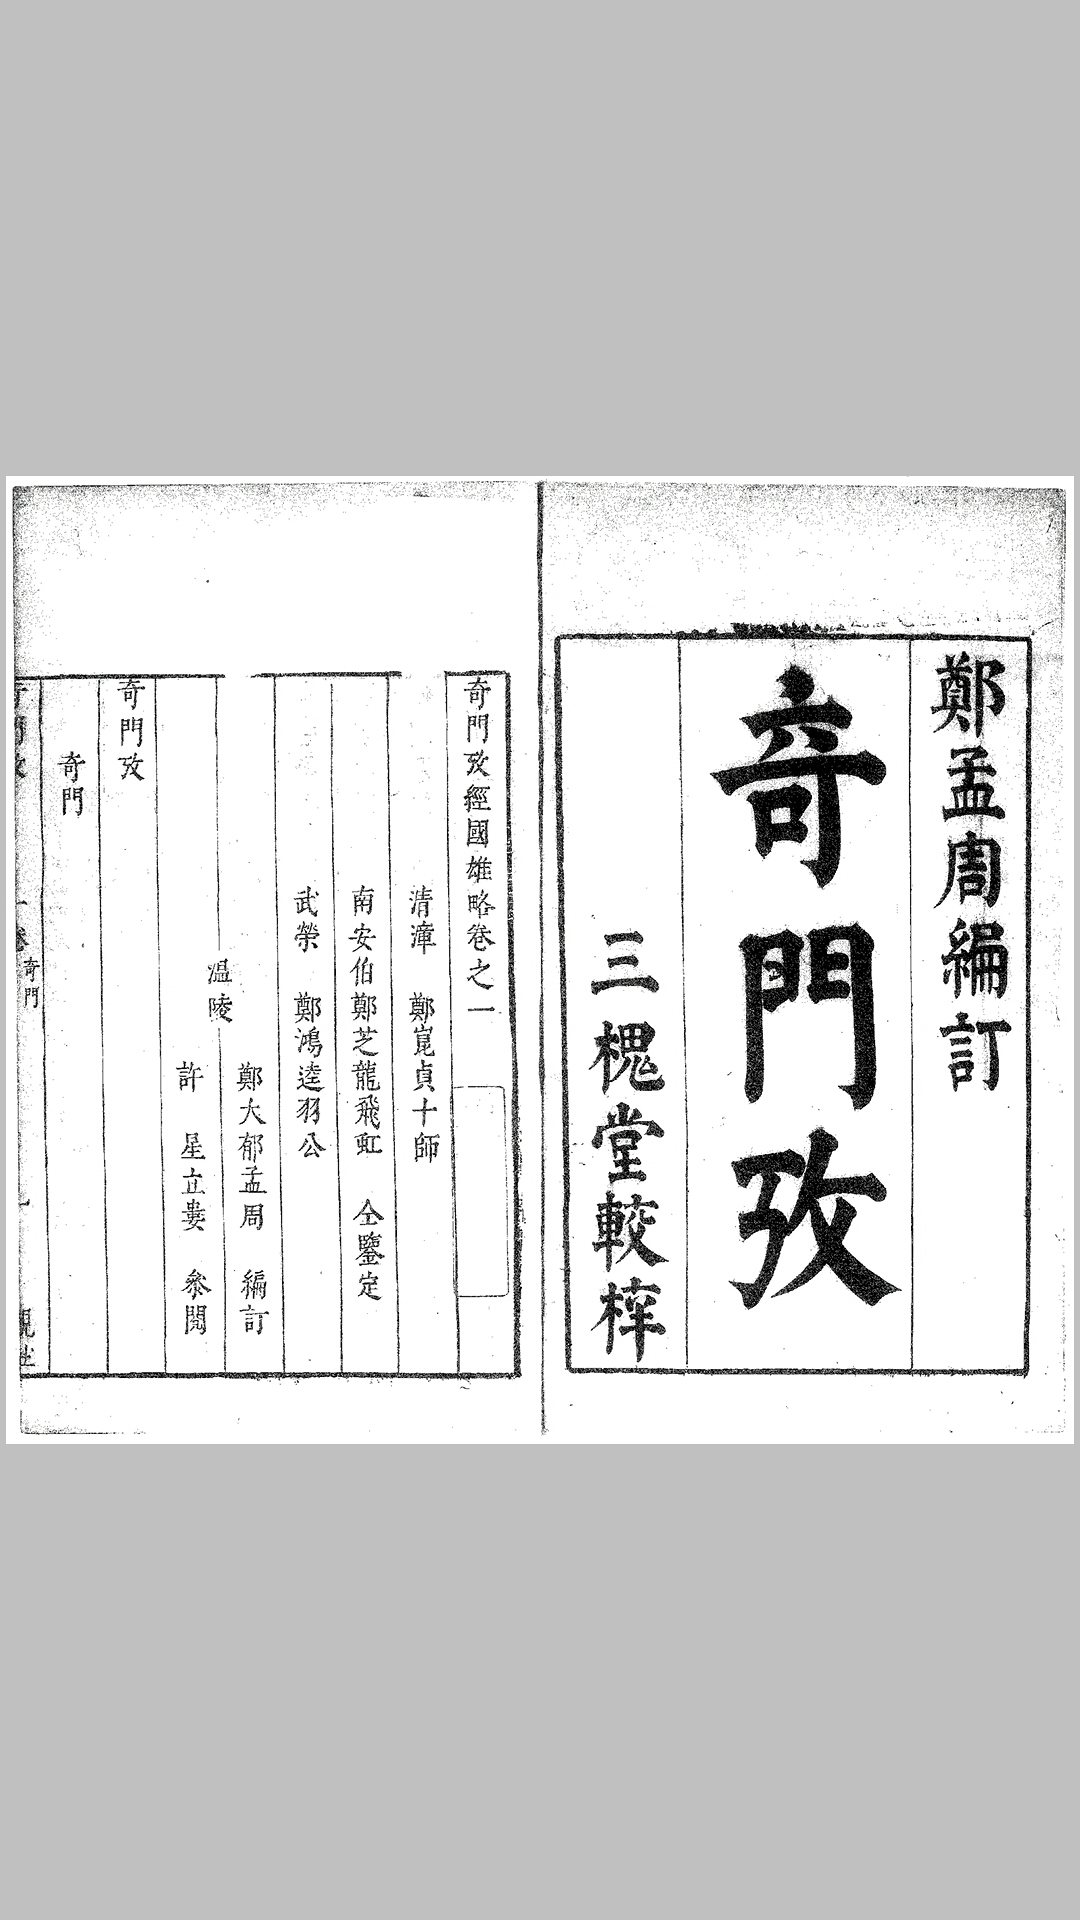 鄭孟周編訂
奇門攷
三槐堂較梓
奇門攷經國雄略卷之一
清漳　鄭崑貞十師
南安伯鄭芝龍飛虹　仝鑒定
武榮　鄭鴻逵羽公
溫陵
鄭大郁孟周　編訂
許　星立婁　叅閱
奇門攷
奇門
奇門